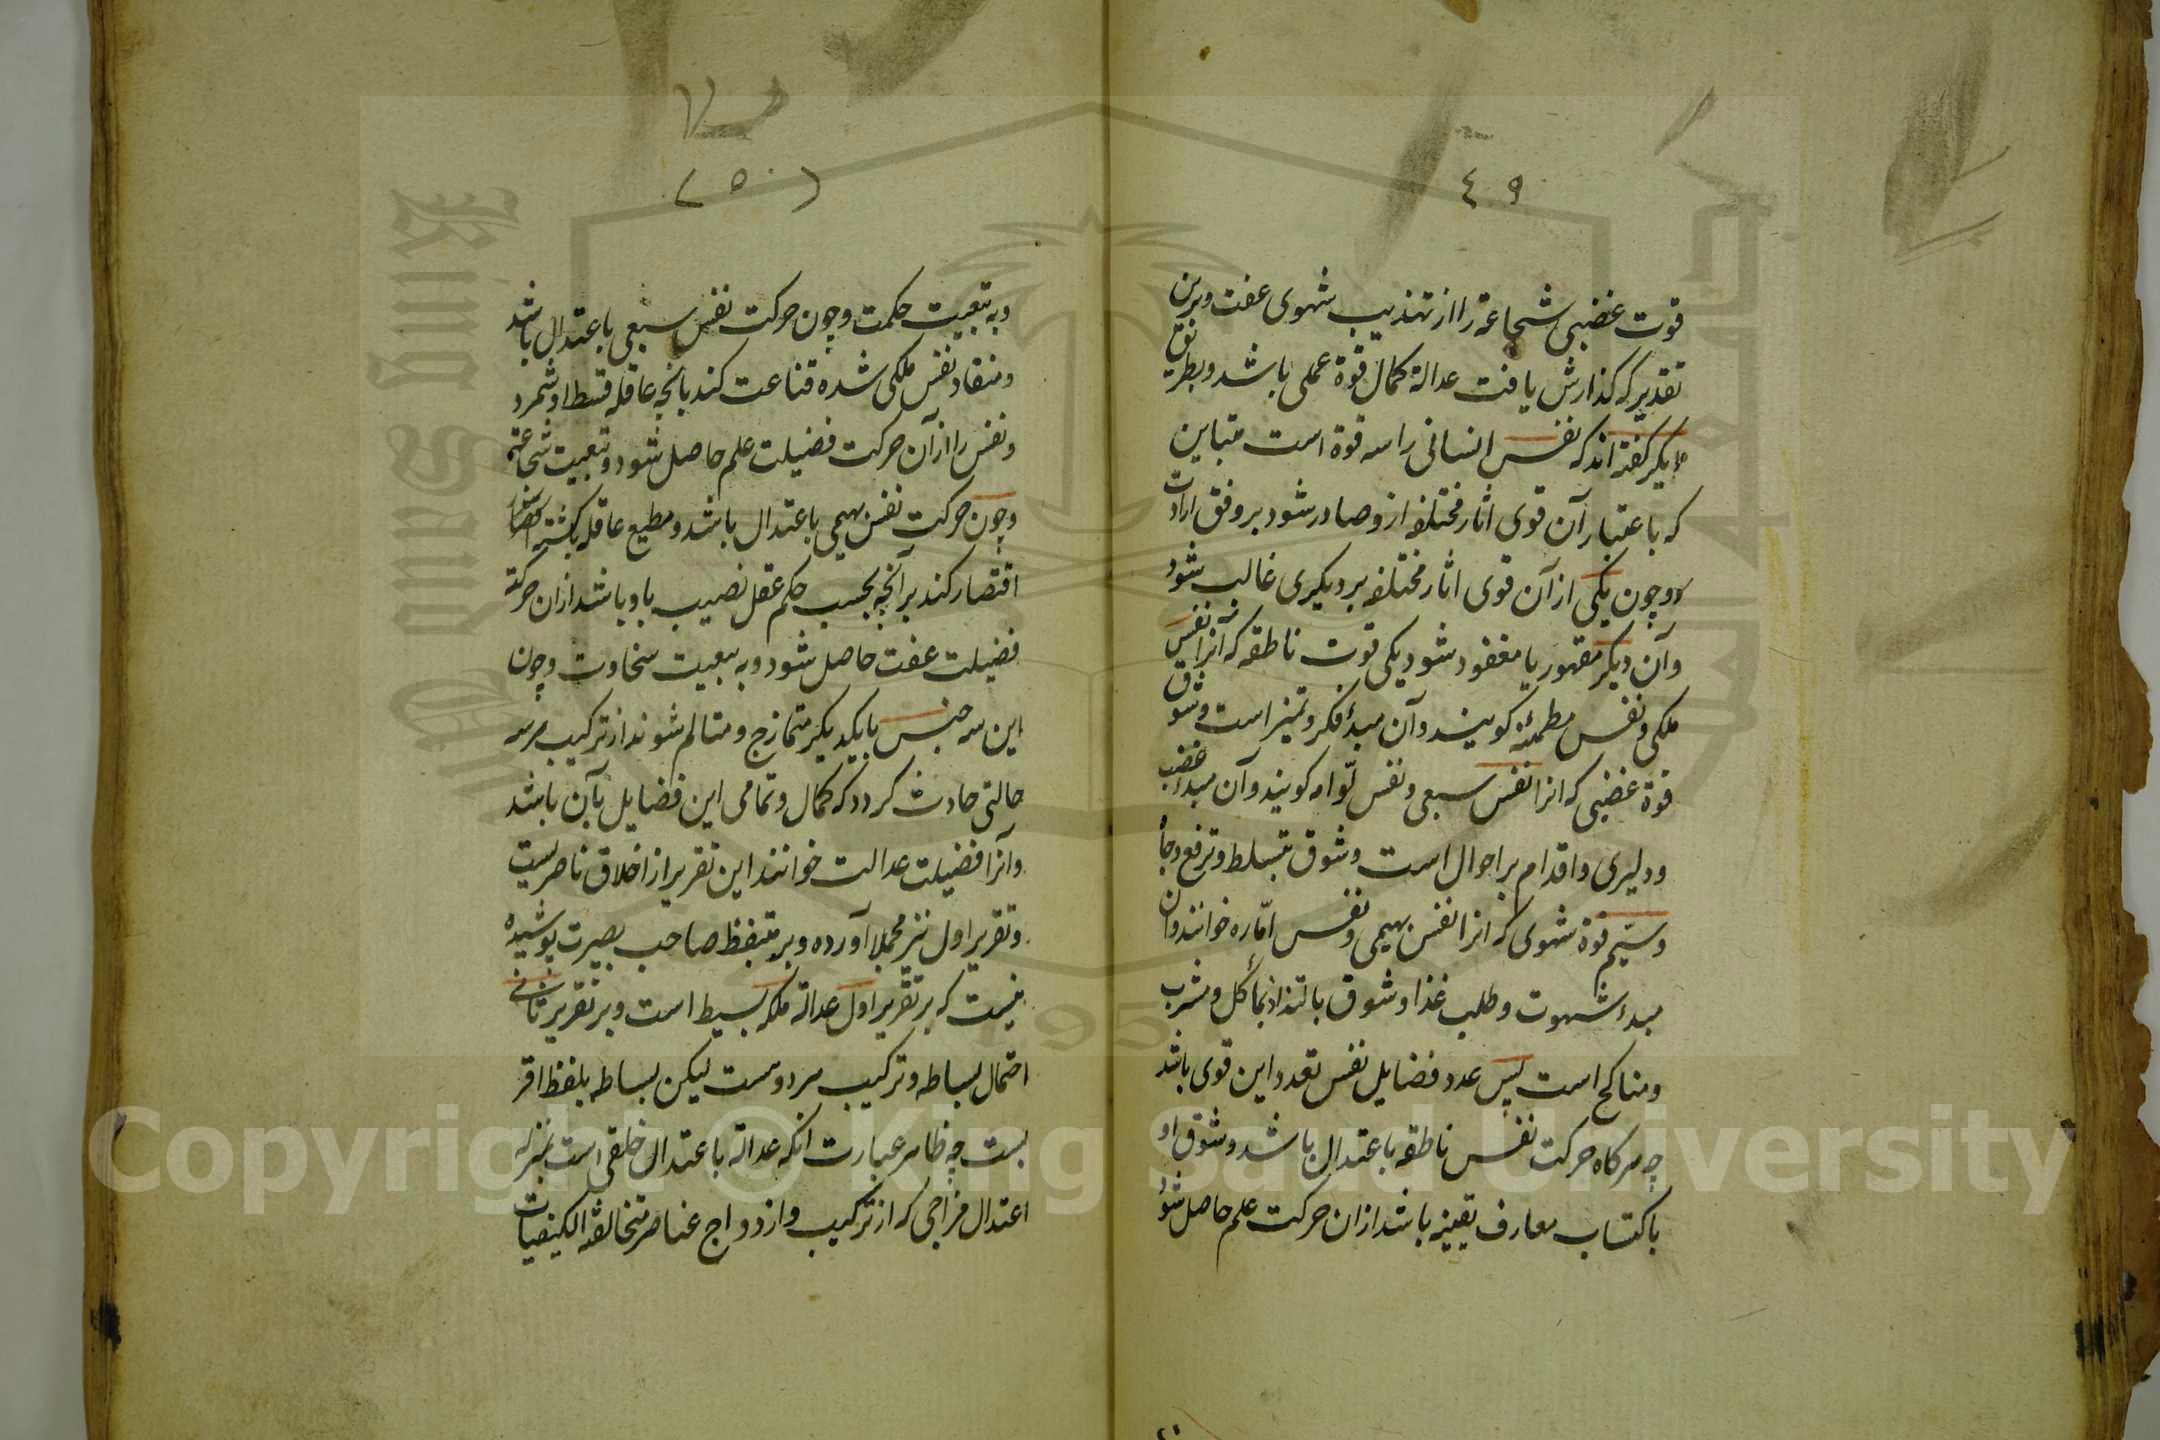 ٤٩
قوت غضبی شجاعة را از تهذیب شهوی عفت و برین
تقدیر که کذارش یافت عدالة کمال قوة عملی باشد و بطریق
دیکر کفته اند که نفس انسانی را سه قوة است متباین
که باعتبار آن قوی اثار مختلفه ازو صادر شود بر وفق ارادت
و چون یکی از آن قوی اثار مختلفه بر دیکری غالب شود
و آن دیکر مقهور یا مفقود شود یکی قوت ناطقه که آنرا نفس
ملکی و نفس مطمئنه کویند و آن مبدأ فکر و تمیز است و شوق
قوة غضبی که انرا نفس سبعی و نفس لوّامه کویند و آن مبدء غضب
و دلیری و اقدام بر اهوال است و شوق بتسلط و ترفع و جاه
و سیّم قوة شهوی که انرا نفس بهیمی و نفس امّاره خوانند و ان
مبدء شهوت و طلب غذا و شوق بالتذاذ بمآکل و مشرب
و مناکح است پس عدد فضایل نفس بعدد این قوی باشد
چه هرکاه حرکت نفس ناطقه باعتدال باشد و شوق او
باکتساب معارف یقینیه باشد ازان حرکت علم حاصل شود
(٥٠)
و به تبعیت حکمت و چون حرکت نفس سبعی باعتدال باشد
و منقاد نفس ملکی شده قناعت کند بانچه عاقله قسط او شمرد
و نفس را از آن حرکت فضیلت علم حاصل شود و تبعیت شجاعة
و چون حرکت نفس بهیمی باعتدال باشد و مطیع عاقله کشته
اقتصار کند بر آنچه بحسب حکم عقل نصیب باو باشد ازان حرکة
فضیلت عفت حاصل شود و به تبعیت سخاوت و چون
این سه جنس بایکدیکر متمازج و متالم شوند از ترکیب هرسه
حالتی حادث کردد که کمال و تمامی این فضایل بآن باشد
و آنرا فضیلت عدالت خوانند این تقریر از اخلاق ناصریست
و تقریر اول نیز مجملا آورده و بر متیقظ صاحب بصیرت پوشیده
نیست که بر تقریر اول عدالة ملکه بسیط است و بر تقریر ثانی
احتمال بساطه و ترکیب هر دوست لیکن بساطه بلفظ اقر
بست چه ظاهر عبارت انکه عدالة باعتدال خلقی است بمنزله
اعتدال مزاجی که از ترکیب و ازدواج عناصر متخالفة الکیفیات
King Saud University
1957
Copyright © King Saud University